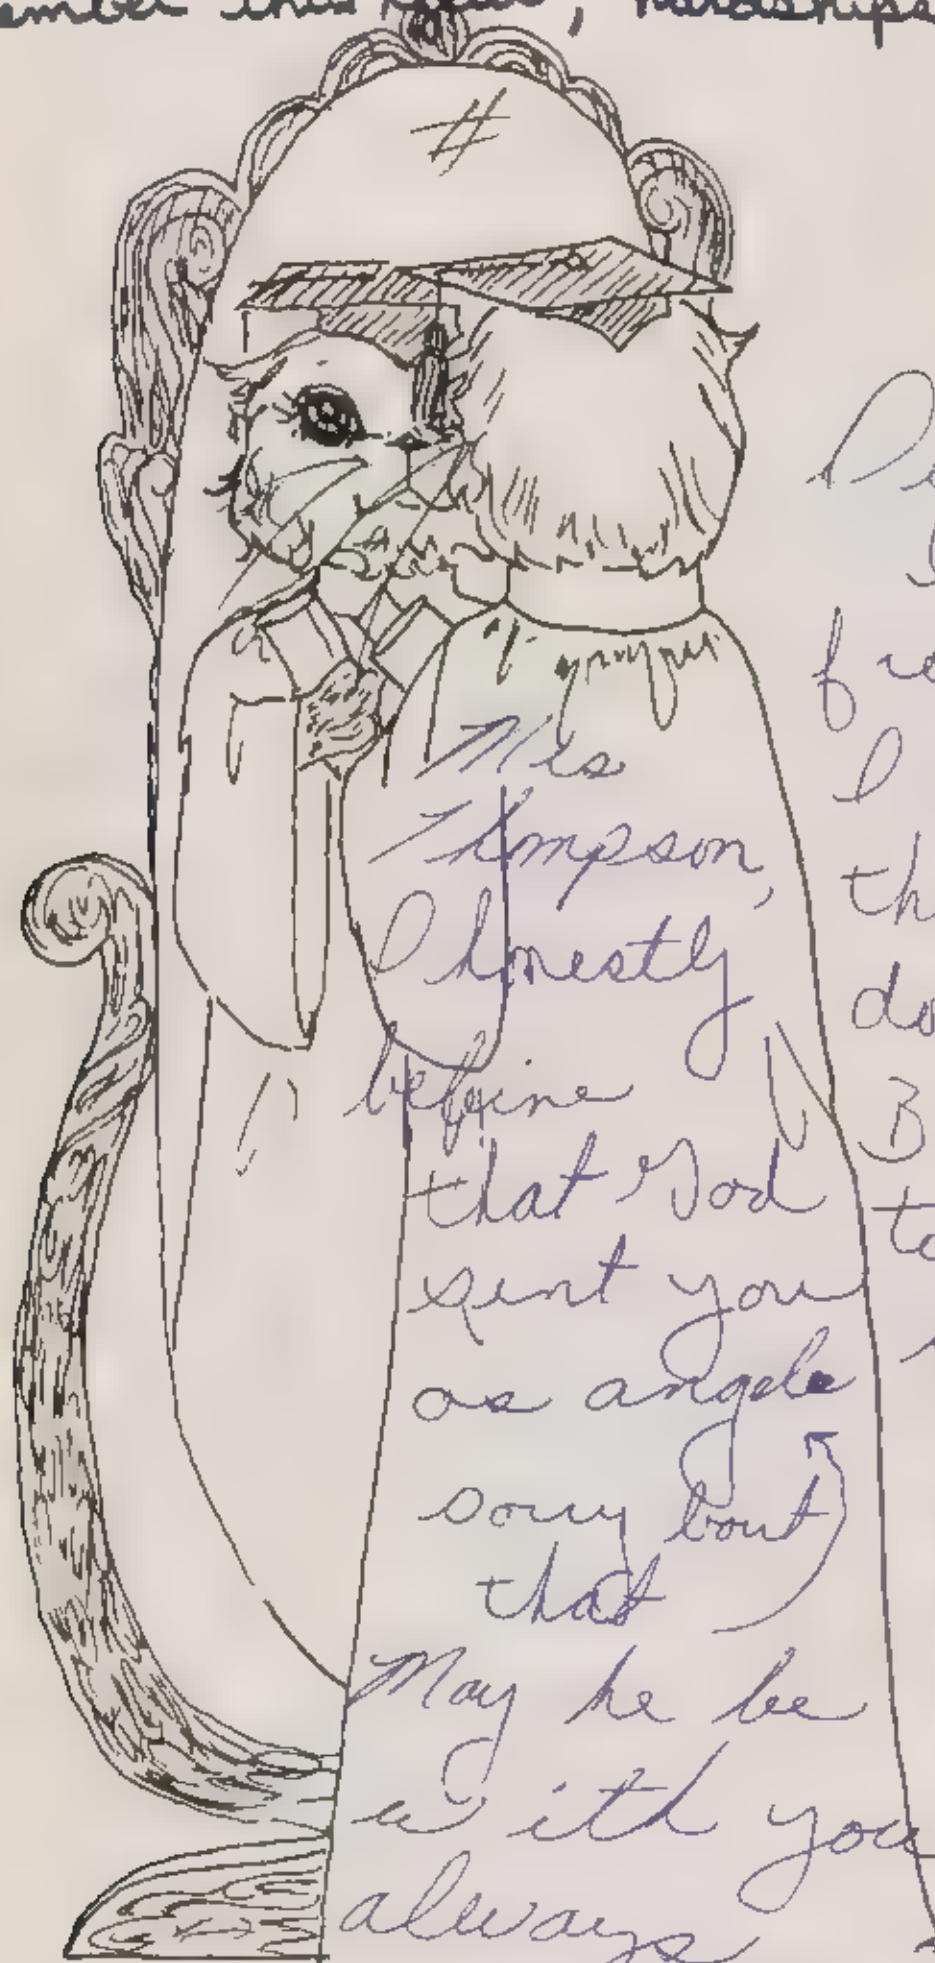 this year, hardships
Mrs
Thompson,
I honestly
believe
that God
sent you
as angele
sorry bout
that
May he be
with you
always